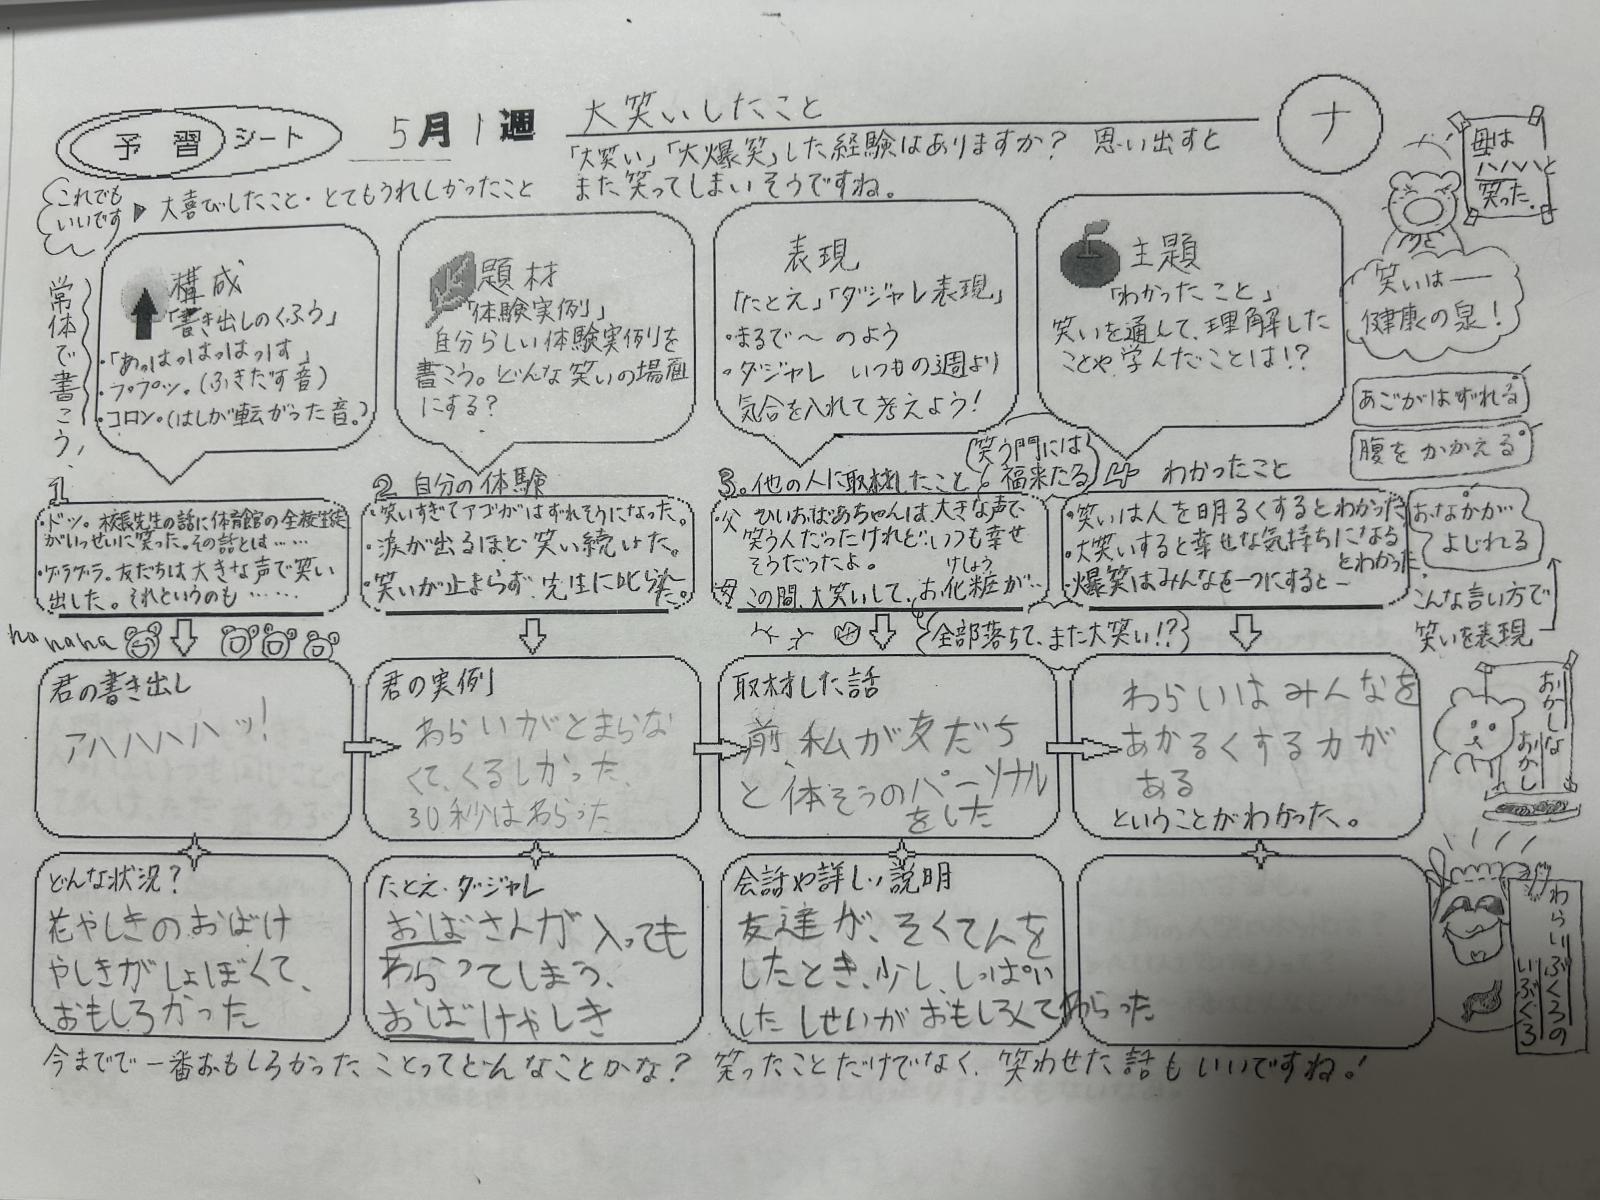 予習シート
5月1週
大笑いしたこと
ナ
「大笑い」「大爆笑」した経験はありますか？ 思い出すと
また笑ってしまいそうですね。
これでも
いいです
▶大喜びしたこと・とてもうれしかったこと
常体で書こう、
構成
「書き出しのくふう」
・「あっはっはっはっはっす」
・フププッ。(ふきだす音)
・コロン。(はしが転がった音。)
題材
「体験実例」
自分らしい体験実例を
書こう。どんな笑いの場面
にする？
表現
たとえ」「ダジャレ表現」
・まるで〜のよう
・ダジャレ いつもの週より
気合を入れて考えよう！
主題
「わかったこと」
笑いを通んて、理解した
ことや学んだことは!?
母は
ハハハハと
笑った。
笑いは――
健康の泉！
あごがはずれる
腹をかかえる
おなかが
よじれる
こんな言い方で
笑いを表現
1
・ドッ。校長先生の話に体育館の全校生徒
がいっせいに笑った。その話とは……
・ゲラゲラ。友だちは大きな声で笑い
出した。それというのも……
2 自分の体験
・笑いすぎてアゴがはずれそうになった。
・涙が出るほど笑い続けた。
・笑いが止まらず、先生に叱られた。
3。他の人に取材したこと
笑う門には
福来たる
・父 ひいおばあちゃんは、大きな声で
笑う人だったけれど、いつも幸せ
そうだったよ。
母 この間、大笑いして、お化粧(けしょう)が…
全部落ちて、また大笑い!?
4 わかったこと
・笑いは人を明るくするとわかった
・大笑いすると幸せな気持ちになる
とわかった
・爆笑はみんなを一つにすると―
ha ha ha
君の書き出し
アハハハハッ！
君の実例
わらいがとまらな
くて、くるしかった、
30秒はわらった
取材した話
前、私が友だち
と体そうのパーソナル
をした
わらいはみんなを
あかるくする力が
ある
ということがわかった。
おかしな
おかし
どんな状況？
花やしきのおばけ
やしきがしょぼくて、
おもしろかった
たとえ・ダジャレ
おばさんが入っても
わらってしまう、
おばけやしき
会話や詳しい説明
友達が、そくてんを
したとき、少し、しっぱい
したしせいがおもしろくてわらった
わらいぶくろの
いぶくろ
今までで一番おもしろかったことってどんなことかな？ 笑ったことだけでなく、笑わせた話もいいですね！